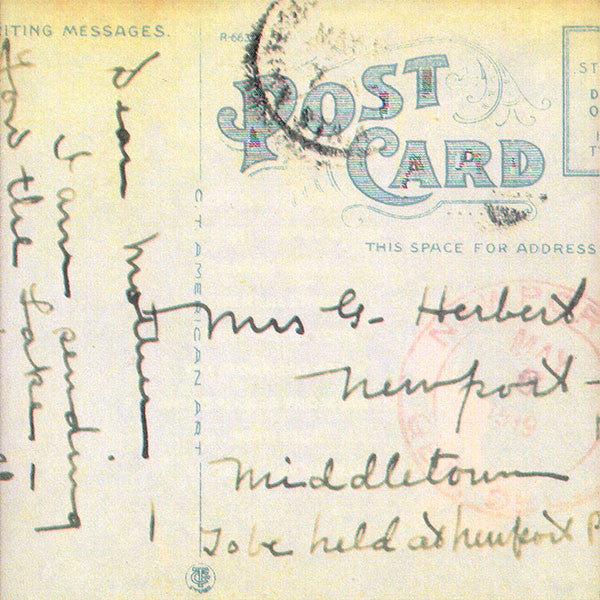 RITING MESSAGES.
R-663
POST
CARD
THIS SPACE FOR ADDRESS
ST
D
O
T
C T AMERICAN ART
Dear Mother —
I am sending
you the Lake —
Mrs G. Herbert
Newport —
Middletown
To be held at Newport P
NEWPOR
MAY